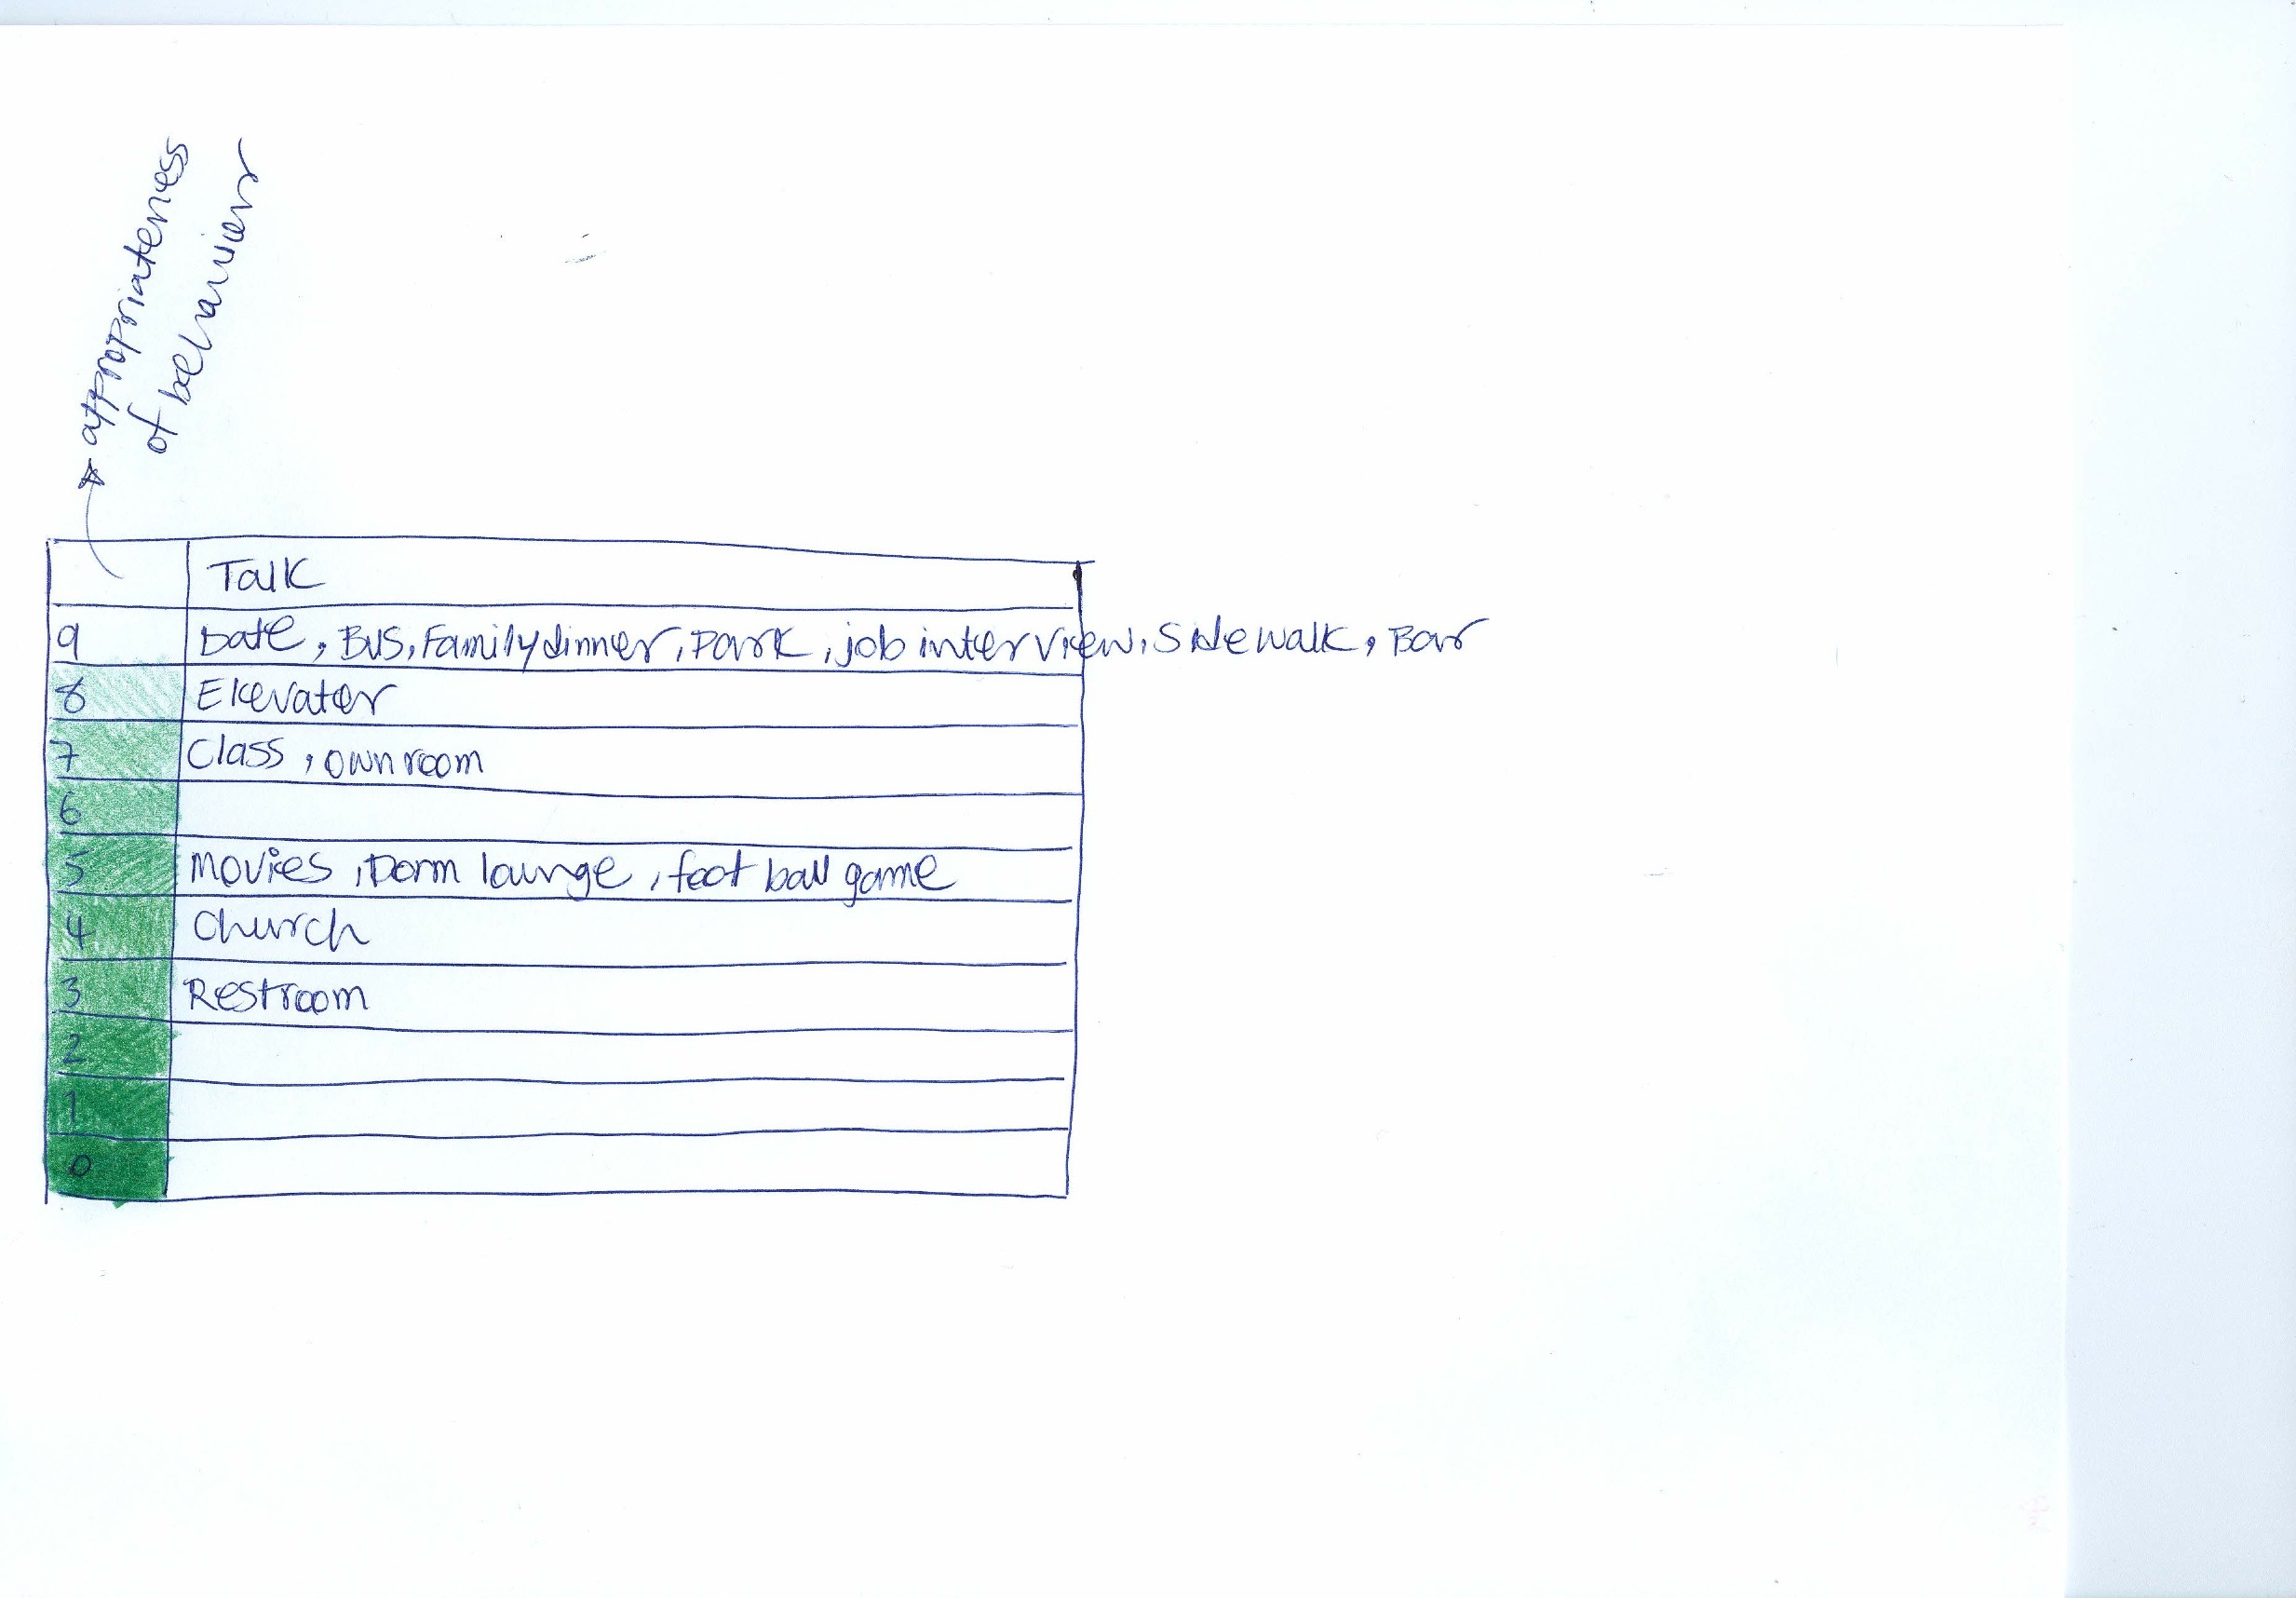 appropriateness
of behaviors
Talk
9 Date, Bus, Family dinner, Park, job interview, Sidewalk, Bar
8 Elevator
7 Class, own room
6
5 Movies, Dorm lounge, foot ball game
4 Church
3 Restroom
2
1
0